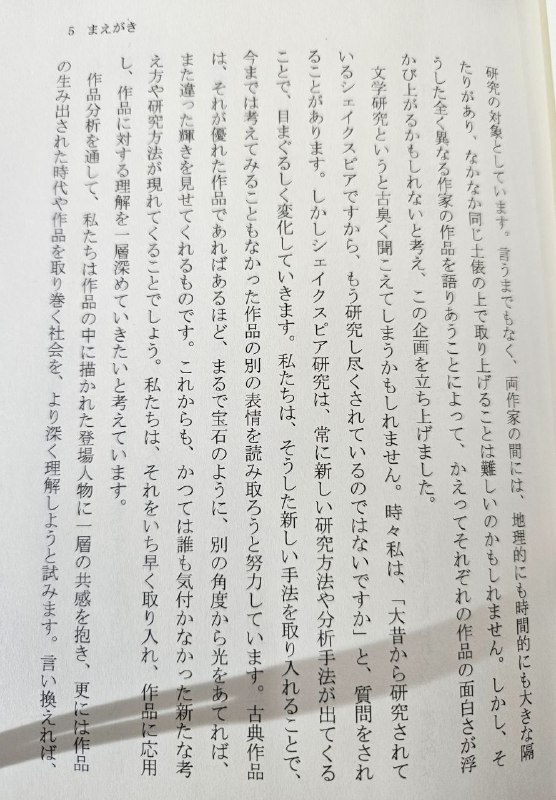 5 まえがき
研究の対象としています。言うまでもなく、両作家の間には、地理的にも時間的にも大きな隔
たりがあり、なかなか同じ土俵の上で取り上げることは難しいのかもしれません。しかし、そ
うした全く異なる作家の作品を語りあうことによって、かえってそれぞれの作品の面白さが浮
かび上がるかもしれないと考え、この企画を立ち上げました。
文学研究というと古臭く聞こえてしまうかもしれません。時々私は、「大昔から研究されて
いるシェイクスピアですから、もう研究し尽くされているのではないですか」と、質問をされ
ることがあります。しかしシェイクスピア研究は、常に新しい研究方法や分析手法が出てくる
ことで、目まぐるしく変化していきます。私たちは、そうした新しい手法を取り入れることで、
今までは考えてみることもなかった作品の別の表情を読み取ろうと努力しています。古典作品
は、それが優れた作品であればあるほど、まるで宝石のように、別の角度から光をあてれば、
また違った輝きを見せてくれるものです。これからも、かつては誰も気付かなかった新たな考
え方や研究方法が現れてくることでしょう。私たちは、それをいち早く取り入れ、作品に応用
し、作品に対する理解を一層深めていきたいと考えています。
作品分析を通して、私たちは作品の中に描かれた登場人物に一層の共感を抱き、更には作品
の生み出された時代や作品を取り巻く社会を、より深く理解しようと試みます。言い換えれば、